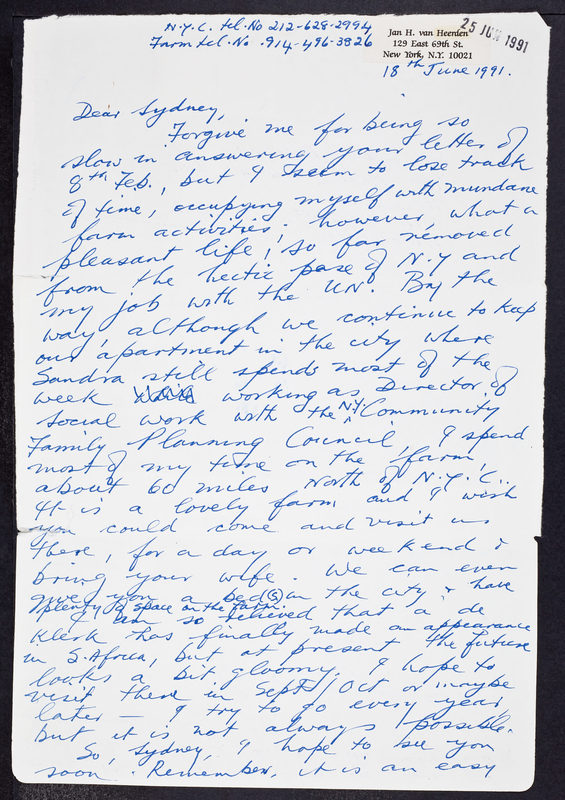 N.Y.C. tel. No 212-628-2994
Farm tel. No. 914-496-3826
Jan H. van Heerden
129 East 69th St.
New York, N.Y. 10021
25 JUN 1991
18th June 1991.
Dear Sydney,
Forgive me for being so
slow in answering your letter of
8th Feb., but I seem to lose track
of time, occupying myself with mundane
farm activities; however, what a
pleasant life!, so far removed
from the hectic pase of N.Y and
my job with the U.N. By the
way, although we continue to keep
our apartment in the city where
Sandra still spends most of the
week working as Director of
social work with the N.Y. Community
Family Planning Council, I spend
most of my time on the farm,
about 60 miles North of N.Y.C..
It is a lovely farm and I wish
you could come and visit us
there, for a day or weekend &
bring your wife. We can even
give you a bed(s) in the city & have
plenty of space on the farm.
I am so relieved that a de
Klerk has finally made an appearance
in S. Africa, but at present the future
looks a bit gloomy. I hope to
visit there in Sept/Oct or maybe
later — I try to go every year
but it is not always possible.
So, Sydney, I hope to see you
soon. Remember, it is an easy